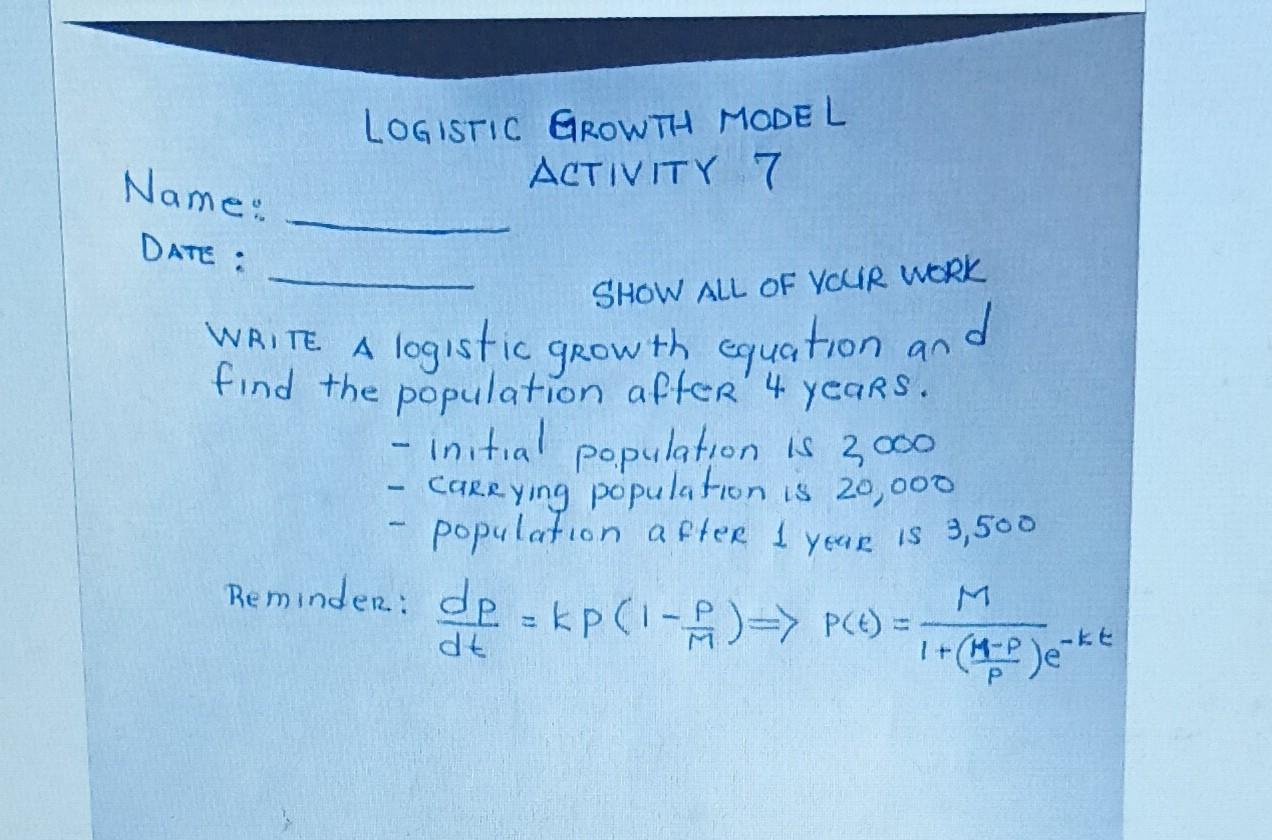 LOGISTIC GROWTH MODEL
ACTIVITY 7
Name:
DATE:
SHOW ALL OF YOUR WORK
WRITE A logistic growth equation and
find the population after 4 years.
- initial population is 2,000
- carrying population is 20,000
- population after 1 year is 3,500
Reminder: dp/dt = kp(1-p/M) => p(t) = M/(1+((M-P)/P)e^-kt)